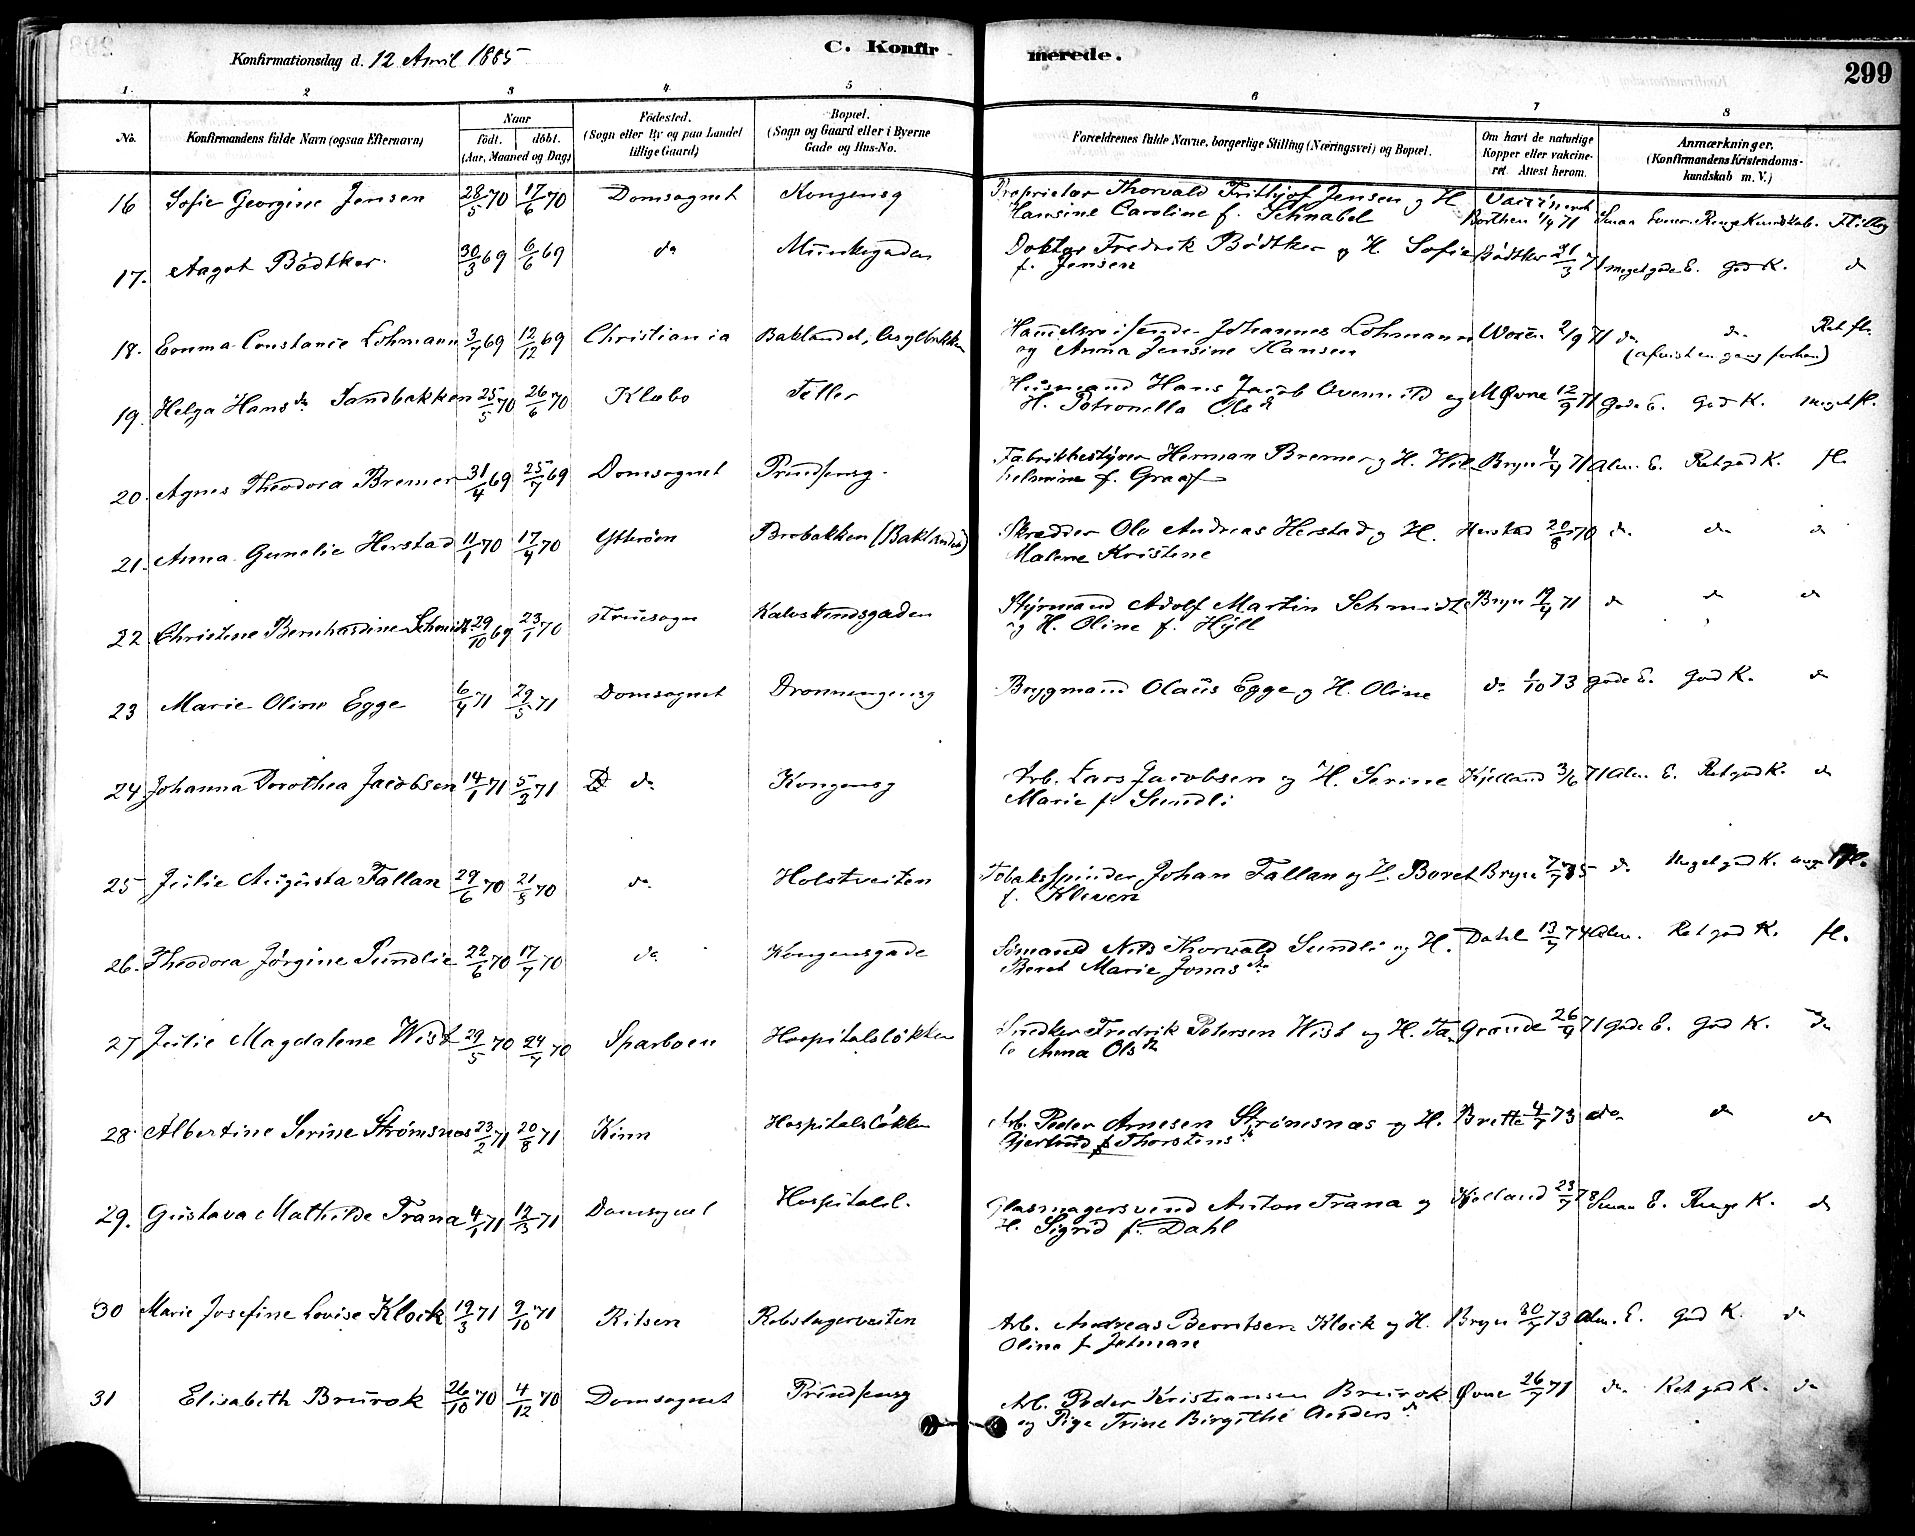 Konfirmationsdag d. 12 April 1885
C. Konfirmerede.
299
1 2 3 4 5 6 7 8
No. Konfirmandens fulde Navn (ogsaa Efternavn) Naar født. døbt. (Aar, Maaned og Dag) Fødested. (Sogn eller By og paa Landet tillige Gaard) Bopæl. (Sogn og Gaard eller i Byerne Gade og Hus-No. Forældrenes fulde Navne, borgerlige Stilling (Næringsvei) og Bopæl. Om havt de naturlige Kopper eller vakcineret. Attest herom. Anmærkninger. (Konfirmandens Kristendomskundskab m. V.)
16 Sofie Georgine Jensen 28/5 70 17/6 70 Domsognet Kongensg Proprietær Thorvald Frithjof Jensen og H.
Hansine Caroline f. Schnabel Borthen 1/9 71 Smaa Evner. Ringe Kundskab. Flittig
17. Aagot Bødtker. 30/3 69 6/6 69 do Munkegaden Doktor Fredrik Bødtker og H. Sofie
f. Jensen Bødtker 21/3 71 meget gode E. God K. do
18. Emma Constance Lohmann 3/7 69 12/12 69 Christiania Baklandet, Asylbakken Handelsreisende Johannes Lohmann
og Anna Jensine Hansen Woxen 2/9 71 do do Ret fl.
(afvist en gang forhen)
19. Helga Hansda. Sandbakken 25/5 70 26/6 70 Klæbo Tiller Husmand Hans Jacob og
H. Petronella Olsd. M Øvne 12/9 71 Gode E. God K. meget fl.
20. Agnes Theodora Bremer 31/4 69 25/7 69 Domsognet Prindsensg. Fabrikbestyrer Herman Bremer og H. Wil-
helmine f. Graaf Bryn 4/4 71 Alm. E. Ret god K. fl.
21. Anna Gunelie Herstad 11/1 70 17/4 70 Ytterøen Brobakken (Baklandet) Skrædder Ole Andreas Herstad og H.
Malene Kristine Herstad 20/8 70 do do do
22. Christine Bernhardine Schmidt 29/10 69 23/1 70 Fruesogn Kalvskindsgaden Styrmand Adolf Martin Schmidt
og H. Oline f. Hÿll Bryn 19/4 71 do do do
23 Marie Oline Egge 6/4 71 29/5 71 Domsognet Dronningensg Brygmand Olaus Egge og H. Oline do 1/10 73 gode E. God K. do
24 Johanna Dorothea Jacobsen 14/1 71 5/3 71 do Kongensg Arb. Lars Jacobsen og H. Serine
Marie f. Sundli Kjelland 3/6 71 Alm. E. Ret god K. do
25 Julie Augusta Fallan 29/6 70 21/8 70 do Holstveiten Tobaksspinder Johan Fallan og H. Beret
f. Kleven Bryn 7/7 75 do Meget god K. fl.
26. Theodora Jørgine Sundlie 22/6 70 17/7 70 do Kongensgade Sømand Nils Thorvald Sundli og H.
Beret Marie Jonasda. Dahl 13/7 74 Alm. Ret god K. fl.
27 Julie Magdalene Wist 29/5 70 24/7 70 Sparboen Hospitalsløkken Snedker Fredrik Petersen Wist og H.
Anna Olsda Grande 26/9 71 Gode E. God K. do
28. Albertine Serine Strømsnæs 23/2 71 20/8 71 Kinn Hospitalsløkken Arb. Peder Arnesen Strømsnæs og H.
Gjertrud f. Thorstensd. Brette 4/7 73 do do do
29. Gustava Mathilde Trana 4/1 71 12/3 71 Domsognet Hospitalsl. Glasmagersvend Anton Trana og
H. Sigrid f. Dahl Kjelland 23/7 78 Smaa E. Ringe K. do
30 Marie Josefine Lovise Klock 19/3 71 9/10 71 Ritsen Rebslagerveiten Arb. Andreas Berntsen Klock og H.
Oline f. Jetman Bryn 30/7 73 Alm. E. God K. do
31 Elisabeth Brurok 26/10 70 4/12 70 Domsognet Prindsensg Arb. Peder Kristiansen Brurok
og Pige Trine Birgithe Andersd. Øvne 26/7 71 do Ret god K. do